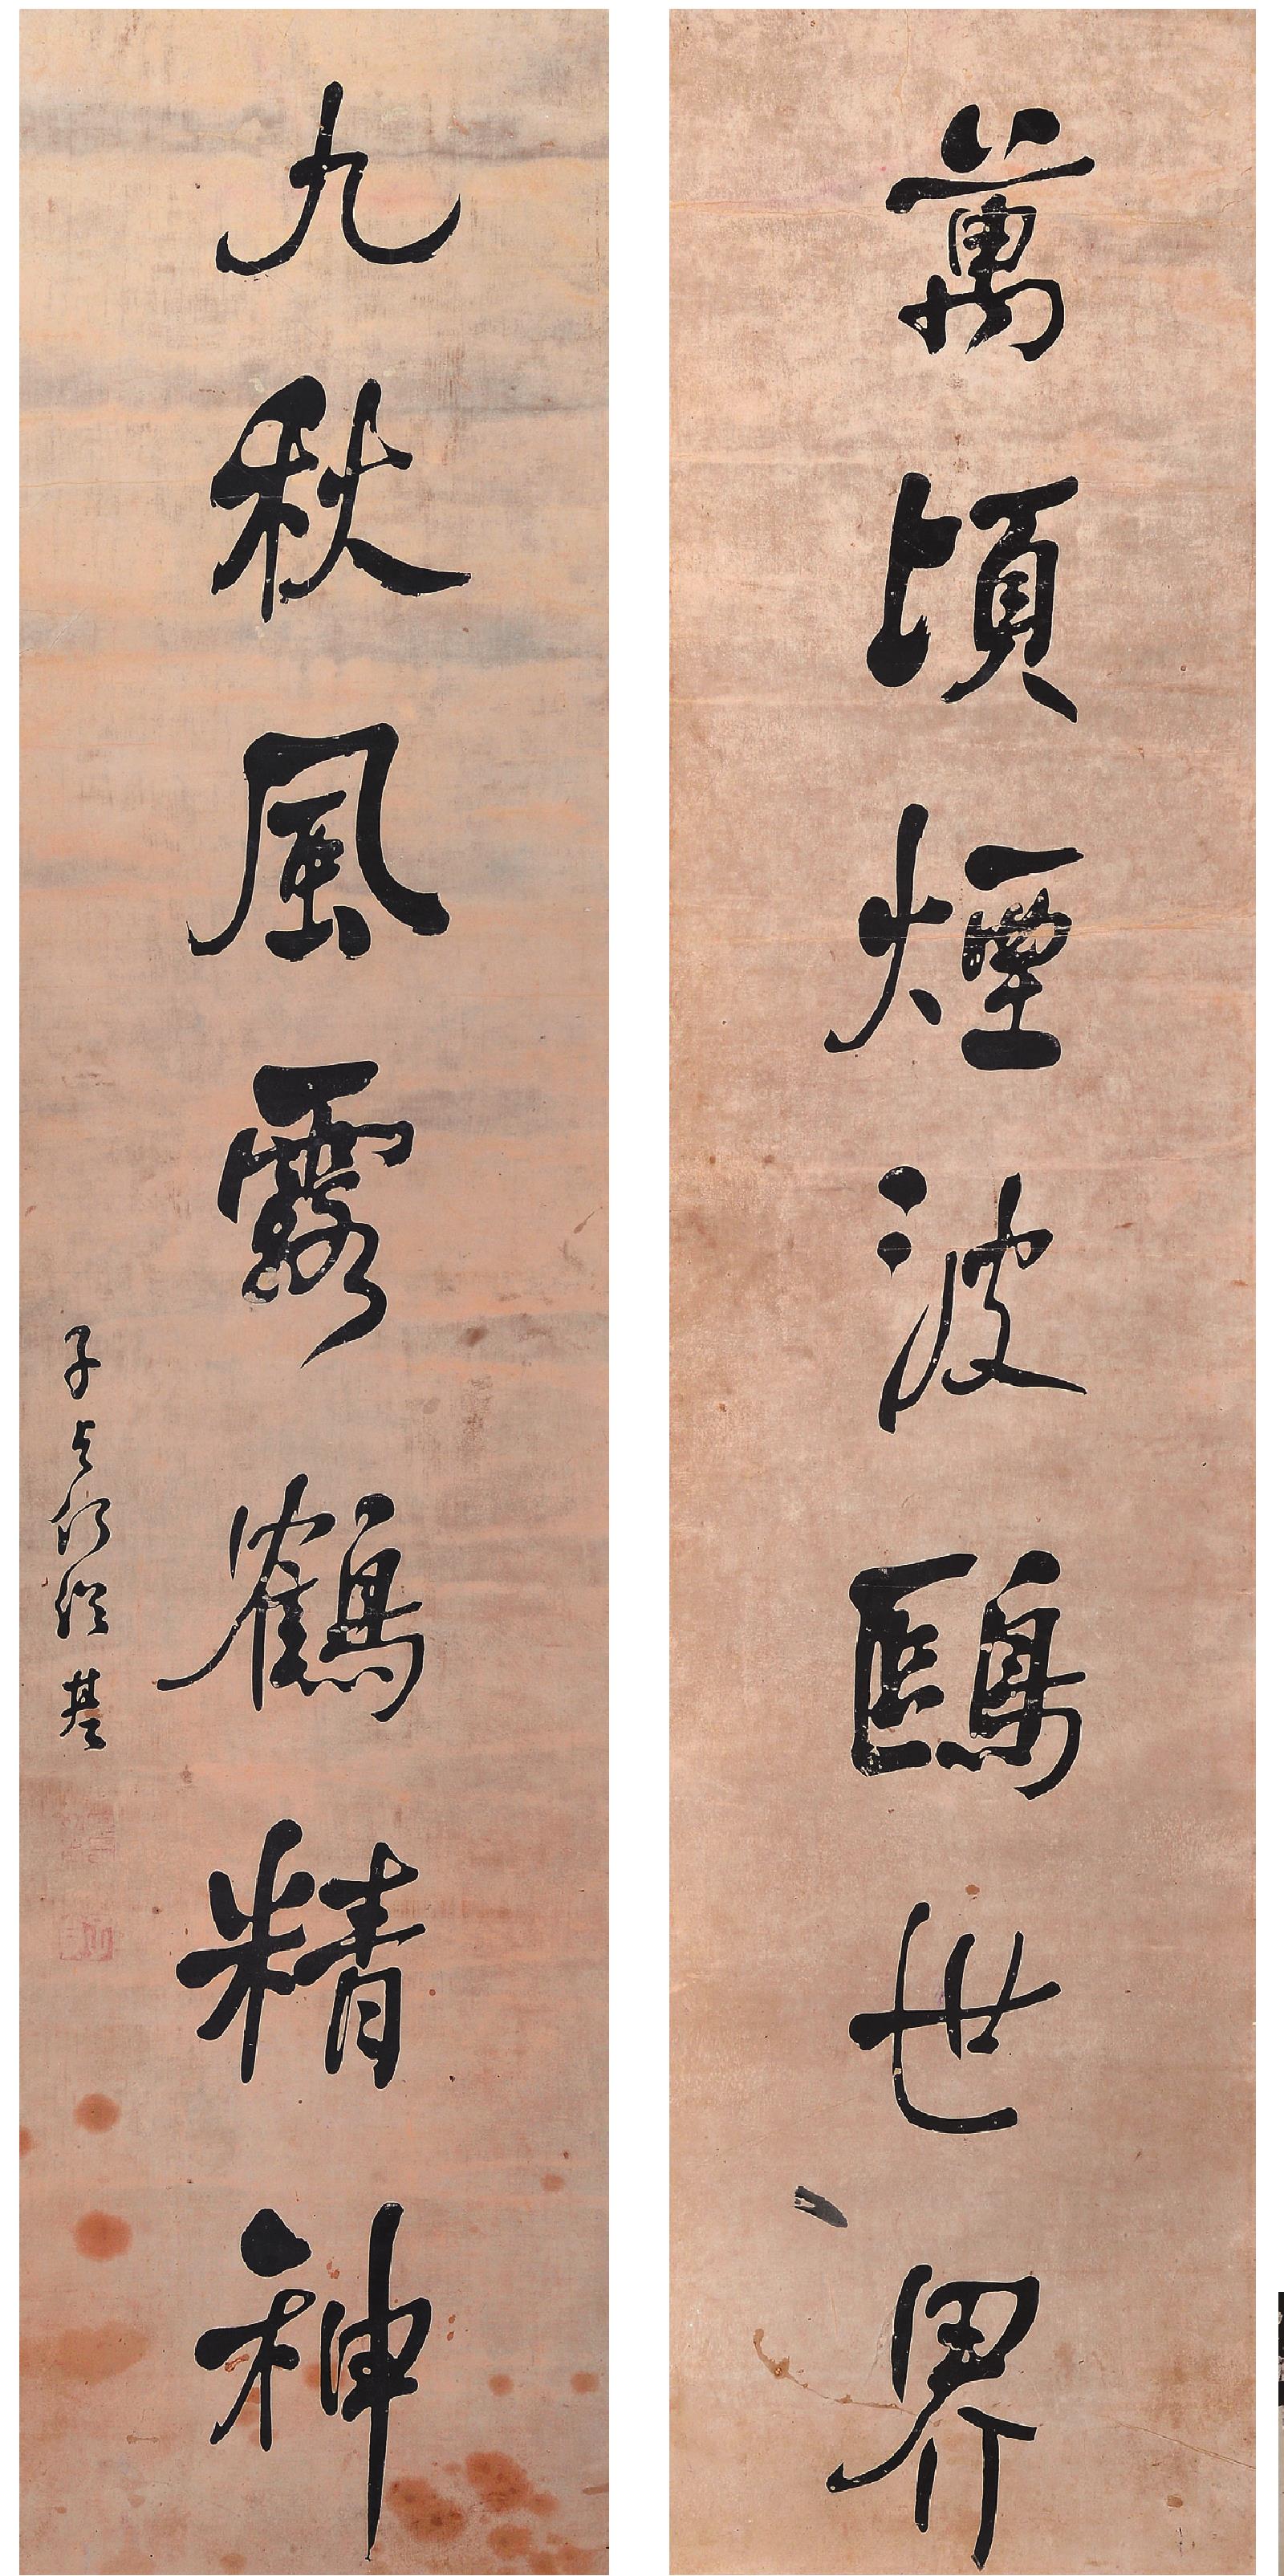 萬頃煙波鷗世界
九秋風露鶴精神
子貞何紹基